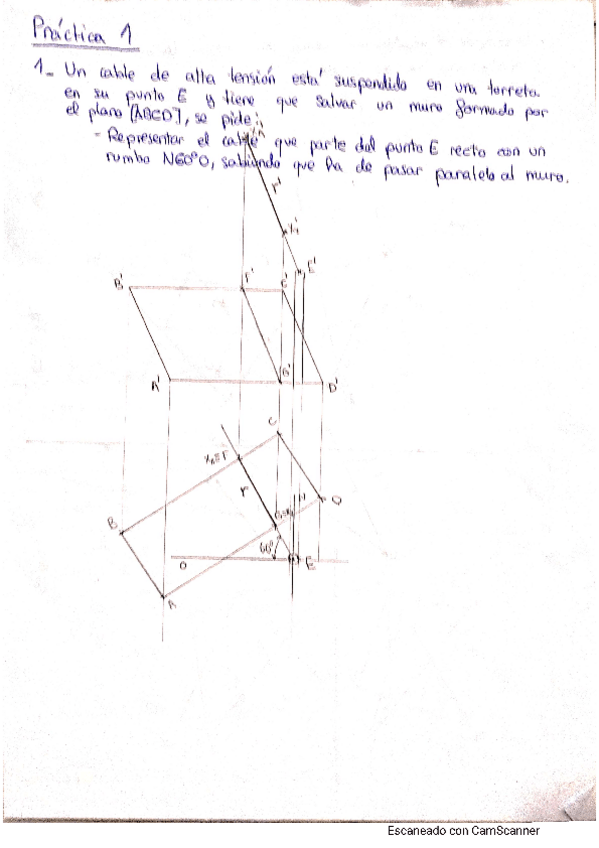 Práctica 1
1- Un cable de alta tensión está suspendido en una torreta
en su punto E y tiene que salvar un muro formado por
el plano [ABCD], se pide:
- Representar el cable que parte del punto E recto con un
rumbo N60ºO, sabiendo que ha de pasar paralelo al muro.
r'
E'
B'
F'
C'
A'
D'
C
r
B
D
60º
O
E
A
Escaneado con CamScanner